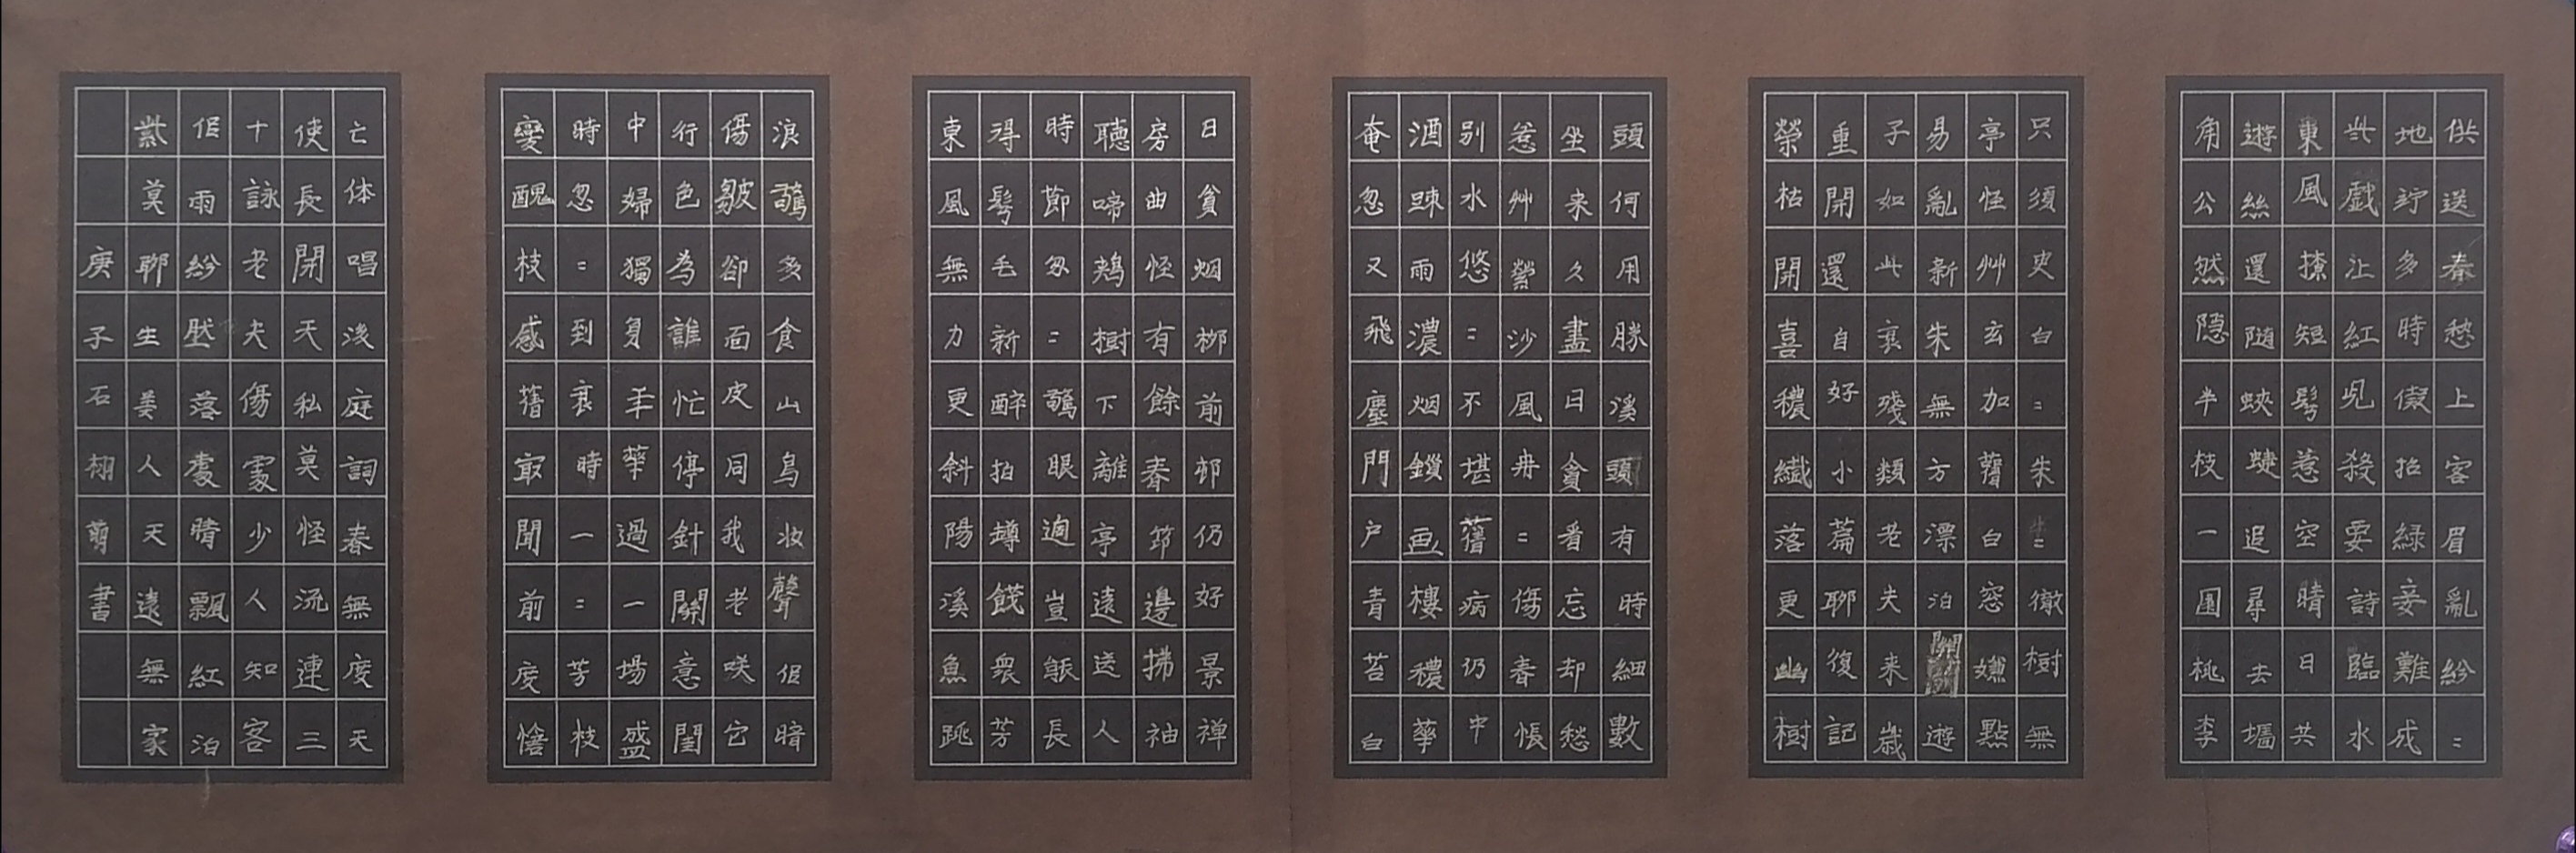 供送春愁上客眉亂紛〻
地竚多時儗招綠妾難成
此戲江紅兇殺要詩臨水
東風撩短髩惹空晴日共
遊絲還隨蛺蝶追尋去墻
角公然隐半枝一園桃李
只須史白〻朱〻徹樹無
亭怪艸玄加鬢白窓嫌點
易亂新朱無方漂泊關遊
子如此衰殘類老夫来歲
重開還自好小篇聊復記
榮枯開喜穠纖落更幽樹
頭何用勝溪頭有時細數
坐来久盡日貪看忘却愁
惹艸縈沙風冉〻傷春悵
别水悠〻不堪舊病仍中
酒疎雨濃烟鎖画樓穠華
奄忽又飛塵門户青苔白
日貧烟栁前邨仍好景禅
房曲怪有餘春筇邊拂袖
聽啼鳺樹下離亭遠送人
時節匆〻驚眼過豈䏈長
得髩毛新醉拍罇餞衆芳
東風無力更斜陽溪魚跳
浪驚多食山鳥妆聲但暗
傷皺卻面皮同我老咲它
行色為誰忙停針關意閨
中婦獨身年華過一場盛
時忽〻到衰時一〻芳枝
變醜枝感舊㝡聞前度憶
亡体唱後庭詞春無度天
使長開天私莫怪流連三
十詠老夫傷處少人知客
但雨紛肰落處晴飄紅泊
紫莫聊生美人天遠無家
庚子石栩萌書